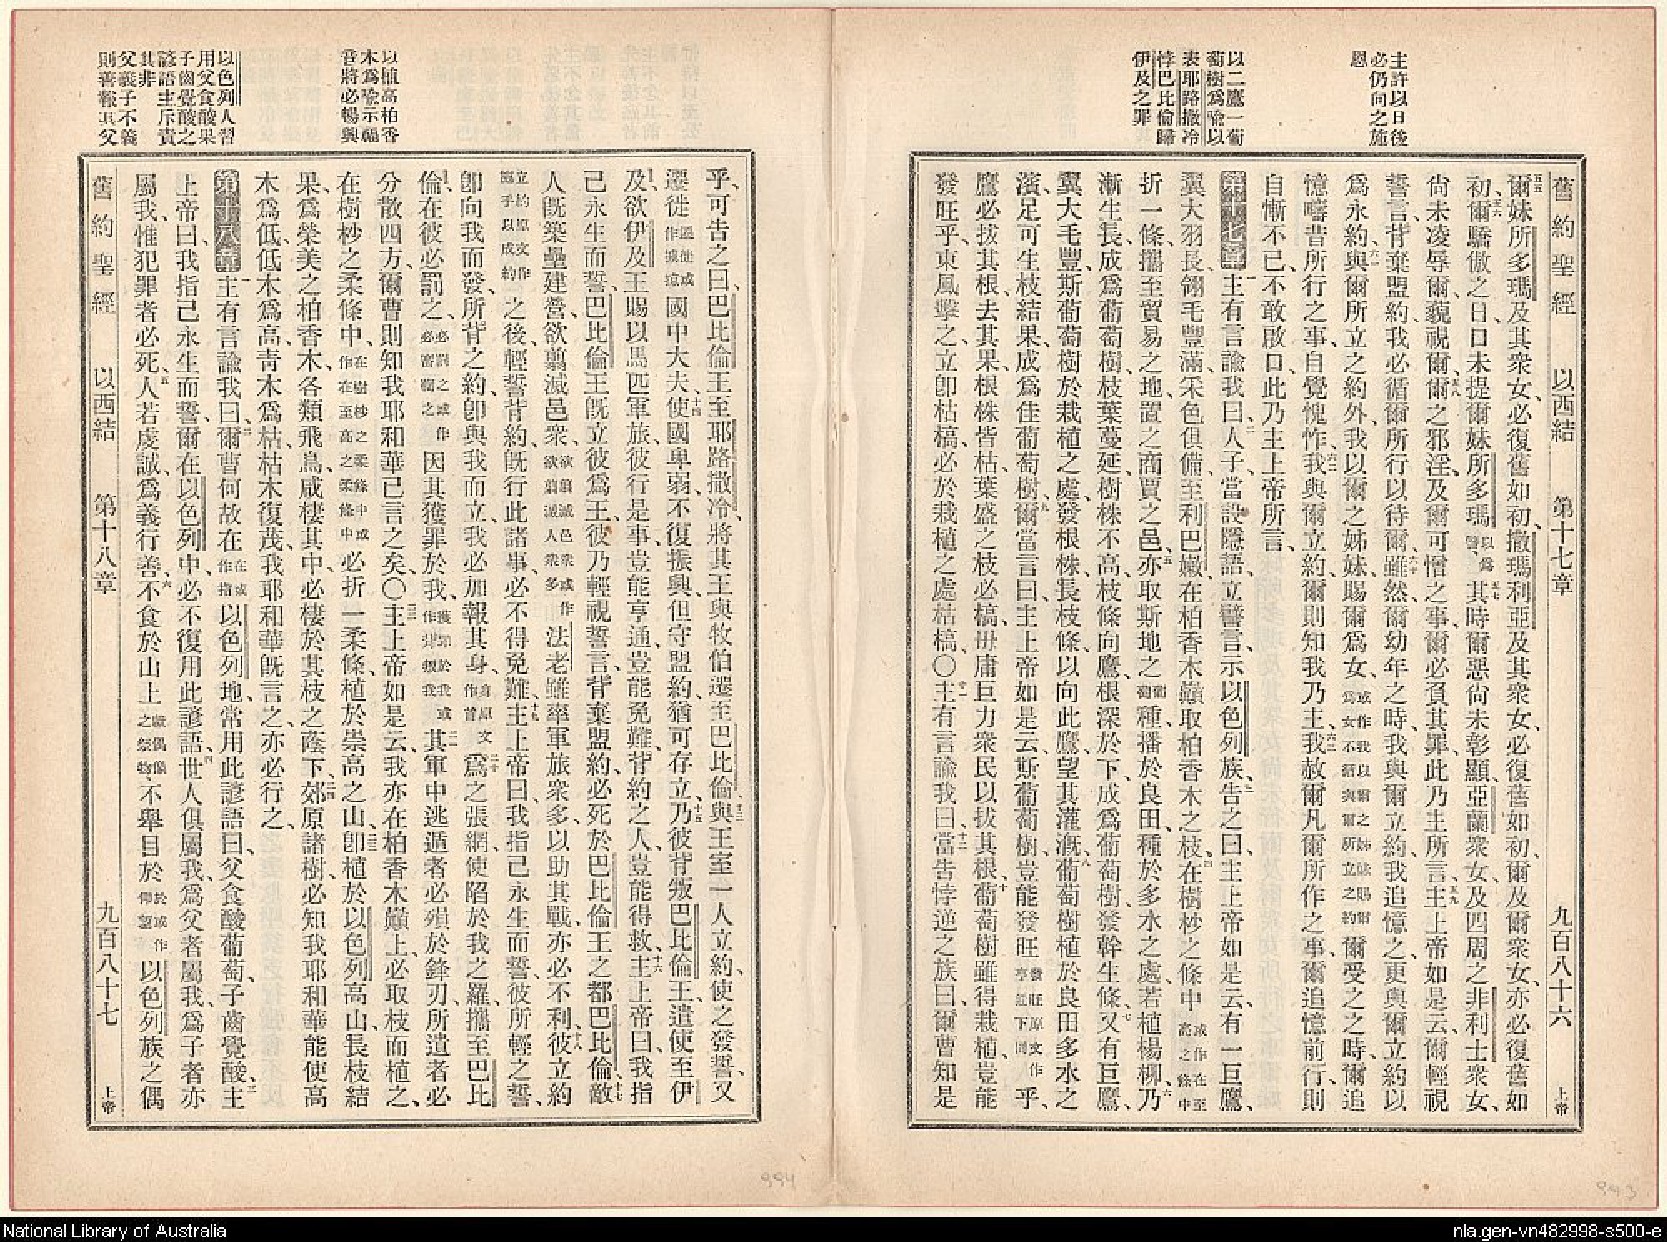 舊約聖經　以西結　第十七章　九百八十六　上帝
主許以日後
必仍向之施
恩
以二鷹一葡
萄樹爲喻以
表耶路撒冷
悖巴比倫歸
伊及之罪
爾妹所多瑪及其衆女、必復舊如初、撒瑪利亞及其衆女、必復舊如初、爾及爾衆女、亦必復舊如
初、爾驕傲之日、口未提爾妹所多瑪、其時爾惡尙未彰顯、亞蘭衆女、及四周之非利士衆女、
尙未凌辱爾、藐視爾、爾之邪淫、及爾可憎之事、爾必負其罪、此乃主所言、主上帝如是云、爾輕視
誓言、背棄盟約、我必循爾所行以待爾、雖然爾幼年之時、我與爾立約、我追憶之、更與爾立約、以
爲永約、與爾所立之約外、我以爾之姊妹賜爾爲女、或作我以爾之姊妹賜爾爲女不循與爾所立之約爾受之之時、爾追
憶疇昔所行之事、自覺愧怍、我與爾立約、爾則知我乃主、我赦爾凡爾所作之事、爾追憶前行、則
自慚不已、不敢啟口、此乃主上帝所言、
第十七章　主有言諭我曰、人子、當設隱語、立譬言、示以色列族、告之曰、主上帝如是云、有一巨鷹、
翼大羽長、翎毛豐滿、采色俱備、至利巴嫩、在柏香木巔、取柏香木之枝、在樹杪之條中、
折一條、攜至貿易之地、置之商賈之邑、亦取斯地之種、播於良田、種於多水之處、若植楊柳、乃
漸生長、成爲葡萄樹、枝葉蔓延、樹株不高、枝條向鷹、根深於下、成爲葡萄樹、發幹生條、又有巨鷹、
翼大毛豐、斯葡萄樹於栽植之處、發根株、長枝條、以向此鷹、望其灌漑、葡萄樹植於良田多水之
濱、足可生枝結果、成爲佳葡萄樹、爾當言曰、主上帝如是云、斯葡萄樹豈能發旺乎、
鷹必拔其根、去其果、根株皆枯、葉盛之枝必槁、毋庸巨力衆民以拔其根、葡萄樹雖得栽植、豈能
發旺乎、東風擊之、立卽枯槁、必於栽植之處枯槁、〇主有言諭我曰、當告悖逆之族曰、爾曹知是
以植高柏香
木爲喻示福
音將必暢興
以色列人習
用父食酸果
子齒覺酸之
諺語主斥責
其非
父義子不義
則善報其父
乎、可告之曰、巴比倫王至耶路撒冷、將其王與牧伯、遷至巴比倫、與王室一人立約、使之發誓、又
遷徙國中大夫、使國卑弱、不復振興、但守盟約、猶可存立、乃彼背叛巴比倫王、遣使至伊
及、欲伊及王賜以馬匹軍旅、彼行是事、豈能亨通、豈能免難、背約之人、豈能得救、主上帝曰、我指
己永生而誓、巴比倫王旣立彼爲王、彼乃輕視誓言、背棄盟約、必死於巴比倫王之都巴比倫、敵
人旣築壘建營、欲翦滅邑衆、欲翦滅邑衆或作欲翦滅人衆多法老雖率軍旅衆多、以助其戰、亦必不利、彼立約
立約原文作臨乎以成約之後、輕誓背約、旣行此諸事、必不得免難、主上帝曰、我指己永生而誓、彼所輕之誓、
卽向我而發、所背之約、卽與我而立、我必加報其身、身原文作首爲之張網、使陷於我之羅、攜至巴比
倫、在彼必罰之、因其獲罪於我、其軍中逃遁者、必殞於鋒刃、所遣者必
分散四方、爾曹則知我耶和華已言之矣、〇主上帝如是云、我亦在柏香木巔上、必取枝而植之、
在樹杪之柔條中、在樹杪之柔條中或作在至高之柔條中必折一柔條、植於崇高之山、卽植於以色列高山、長枝結
果、爲榮美之柏香木、各類飛鳥、咸棲其中、必棲於其枝之蔭下、郊原諸樹、必知我耶和華能使高
木爲低、低木爲高、靑木爲枯、枯木復茂、我耶和華旣言之、亦必行之、
第十八章　主有言諭我曰、爾曹何故在在或作指以色列地、常用此諺語曰、父食酸葡萄、子齒覺酸、主
上帝曰、我指己永生而誓、爾在以色列中、必不復用此諺語、世人俱屬我、爲父者屬我、爲子者亦
屬我、惟犯罪者必死、人若虔誠、爲義行善、不食於山上、不舉目於以色列族之偶
舊約聖經　以西結　第十八章　九百八十七　上帝
994
993
National Library of Australia
nla.gen-vn482998-s500-e